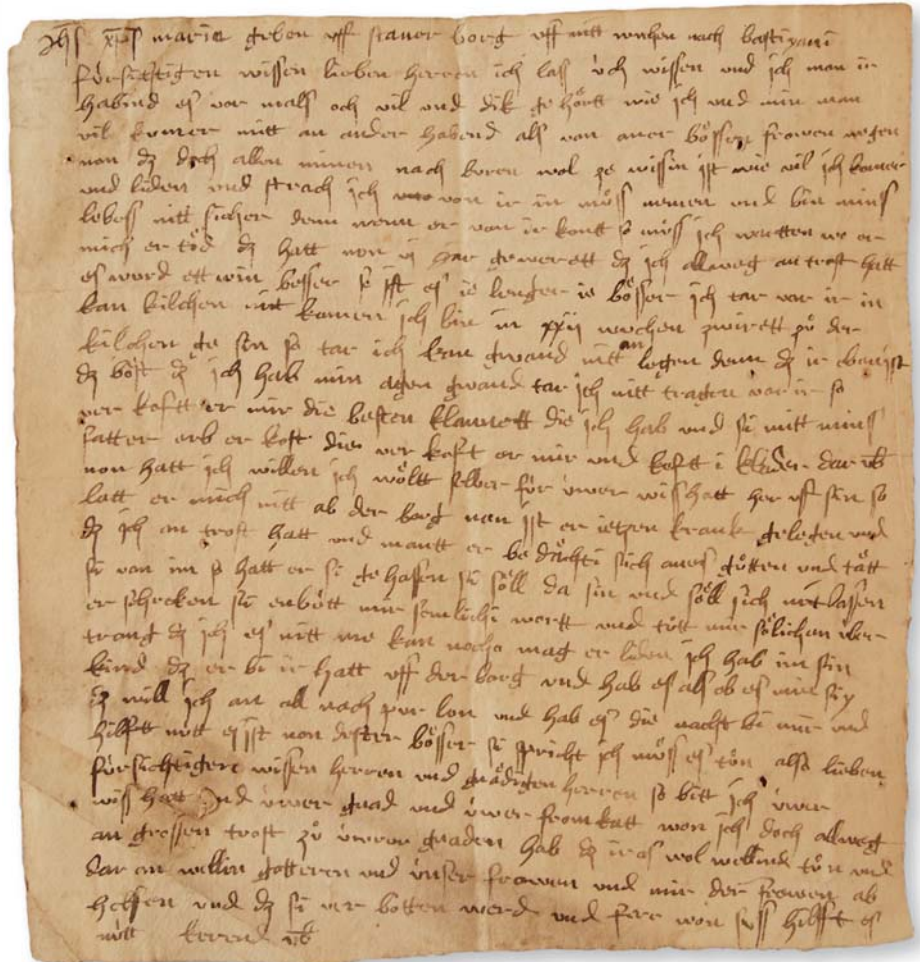 Jhs xps maria geben uff stauer borg uff mitt wuchen nach bastiyani
fürsichtigen wissen lieben herren ich lass üch wissen und ich man ir
habind es vor mals och vil und dik ge hörtt wie ich und min man
vil kumer mitt an ander habend als von aner bössen frowen wegen
nun dz doch allen minen nach buren wol ze wissin ist wie vil ich kumer
und liden und strach ich von ir in möss nemen und bin mins
lebess nitt sicher denn wenn er von ir kontt so möss ich wartten wo er
mich er töd dz hatt non iij jar gewerett dz ich allweg an trost hatt
es werd ett win besser so ist es ie lenger ie bösser ich tar vor ir in
kan kilchen nitt komen ich bin in xxij wochen zwirett zü der
kilchen ge sin so tar ich kan gwand nitt an legen denn dz ir eben ist
dz böst dz ich hab min agen gwand tar ich nitt tragen vor ir so
ver koftt er mir die besten klainett die ich hab und si mitt mins
fatter erb er koft die ver koft er mir und koftt i klader dar ub
non hatt ich willen ich wöltt selber für üwer wishatt her uff sin so
latt er mich nitt ab der borg non ist er ietzen krank gelegen und
dz ich an trost hatt und mantt er be dächti sich anes götten und tätt
si von im so hatt er si ge hassen si söll da sin und söll sich nitt lassen
er schrecken si enbött mir semlichi wortt und tütt mir sölichen über
trang dz ich es nitt me kan nocha mag er liden ich hab im sin
kind dz er bi ir hatt uff der borg und hab es als ob es min siy
dz will ich an all nach pur lon und hab es die nacht bi mir und
hilftt nitt es ist non dester bösser si spricht ich möss es tön also lieben
fürsichtigen wissen herren und gnädigen herren so bitt ich üwer
wiss hatt und üwer gnad und üwer fromkatt won ich doch allweg
an grossen trost zü üwren gnaden hab dz ir as wol wellind tön und
dar an wellin gott eren und ünser frowen und mir der frowen ab
helfen und dz si ver botten werd und ferr won suss hilfft es
nütt kerend ub